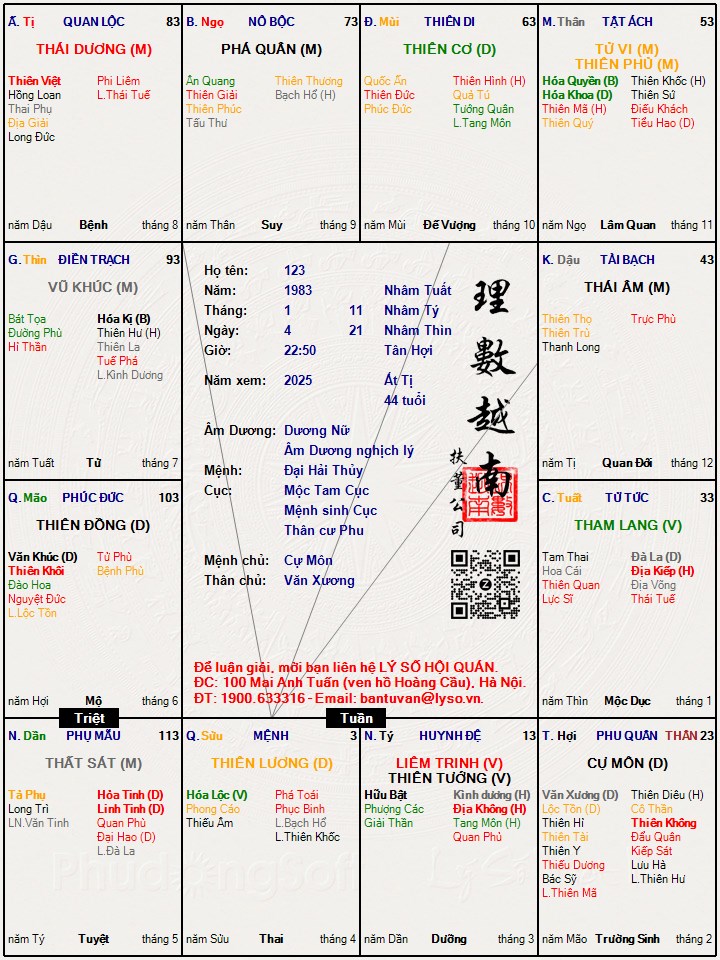 Ã. Tị QUAN LỘC 83
THÁI DƯƠNG (M)
Thiên Việt Phi Liêm
Hồng Loan L.Thái Tuế
Thai Phụ
Địa Giải
Long Đức
năm Dậu Bệnh tháng 8
B. Ngọ NÔ BỘC 73
PHÁ QUÂN (M)
Ân Quang Thiên Thương
Thiên Giải Bạch Hổ (H)
Thiên Phúc
Tấu Thư
năm Thân Suy tháng 9
Đ. Mùi THIÊN DI 63
THIÊN CƠ (D)
Quốc Ấn Thiên Hình (H)
Thiên Đức Quả Tú
Phúc Đức Tướng Quân
L.Tang Môn
năm Mùi Đế Vượng tháng 10
M. Thân TẬT ÁCH 53
TỬ VI (M)
THIÊN PHỦ (M)
Hóa Quyền (B) Thiên Khốc (H)
Hóa Khoa (D) Thiên Sứ
Thiên Mã (H) Điếu Khách
Thiên Quý Tiểu Hao (D)
năm Ngọ Lâm Quan tháng 11
G. Thìn ĐIỀN TRẠCH 93
VŨ KHÚC (M)
Bát Tọa Hóa Kị (B)
Đường Phù Thiên Hư (H)
Hỉ Thần Thiên La
Tuế Phá
L.Kình Dương
năm Tuất Tử tháng 7
Họ tên: 123
Năm: 1983 Nhâm Tuất
Tháng: 1 11 Nhâm Tý
Ngày: 4 21 Nhâm Thìn
Giờ: 22:50 Tân Hợi
Năm xem: 2025 Ất Tị
44 tuổi
Âm Dương: Dương Nữ
Âm Dương nghịch lý
Mệnh: Đại Hải Thủy
Cục: Mộc Tam Cục
Mệnh sinh Cục
Thân cư Phu
Mệnh chủ: Cự Môn
Thân chủ: Văn Xương
理數越南
扶董公司
Để luận giải, mời bạn liên hệ LÝ SỐ HỘI QUÁN.
ĐC: 100 Mai Anh Tuấn (ven hồ Hoàng Cầu), Hà Nội.
ĐT: 1900.633316 - Email: bantuvan@lyso.vn.
K. Dậu TÀI BẠCH 43
THÁI ÂM (M)
Thiên Thọ Trực Phù
Thiên Trù
Thanh Long
năm Tị Quan Đới tháng 12
Q. Mão PHÚC ĐỨC 103
THIÊN ĐỒNG (D)
Văn Khúc (D) Tử Phù
Thiên Khôi Bệnh Phù
Đào Hoa
Nguyệt Đức
L.Lộc Tồn
năm Hợi Mộ tháng 6
C. Tuất TỬ TỨC 33
THAM LANG (V)
Tam Thai Đà La (D)
Hoa Cái Địa Kiếp (H)
Thiên Quan Địa Võng
Lực Sĩ Thái Tuế
năm Thìn Mộc Dục tháng 1
Triệt
Tuần
N. Dần PHỤ MẪU 113
THẤT SÁT (M)
Tả Phụ Hỏa Tinh (D)
Long Trì Linh Tinh (D)
LN.Văn Tinh Quan Phù
Đại Hao (D)
L.Đà La
năm Tý Tuyệt tháng 5
Q. Sửu MỆNH 3
THIÊN LƯƠNG (D)
Hóa Lộc (V) Phá Toái
Phong Cáo Phục Binh
Thiếu Âm L.Bạch Hổ
L.Thiên Khốc
năm Sửu Thai tháng 4
N. Tý HUYNH ĐỆ 13
LIÊM TRINH (V)
THIÊN TƯỚNG (V)
Hữu Bật Kình dương (H)
Phượng Các Địa Không (H)
Giải Thần Tang Môn (H)
Quan Phủ
năm Dần Dưỡng tháng 3
T. Hợi PHU QUÂN THÂN 23
CỰ MÔN (D)
Văn Xương (D) Thiên Diêu (H)
Lộc Tồn (D) Cô Thần
Thiên Hỉ Thiên Không
Thiên Tài Đẩu Quân
Thiên Y Kiếp Sát
Thiếu Dương Lưu Hà
Bác Sỹ L.Thiên Hư
L.Thiên Mã
năm Mão Trường Sinh tháng 2